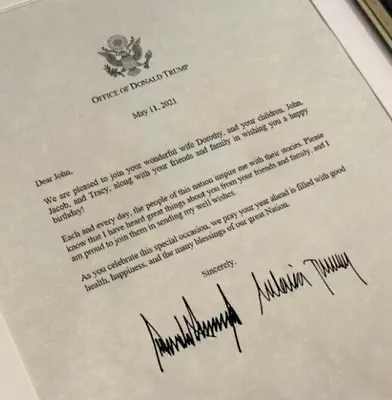 OFFICE OF DONALD TRUMP
May 11, 2021
Dear John,
We are pleased to join your wonderful wife Dorothy, and your children, John,
Jacob, and Tracy, along with your friends and family in wishing you a happy
birthday!
Each and every day, the people of this nation inspire me with their stories. Please
know that I have heard great things about you from your friends and family, and I
am proud to join them in sending my well wishes.
As you celebrate this special occasion, we pray your year ahead is filled with good
health, happiness, and the many blessings of our great Nation.
Sincerely,